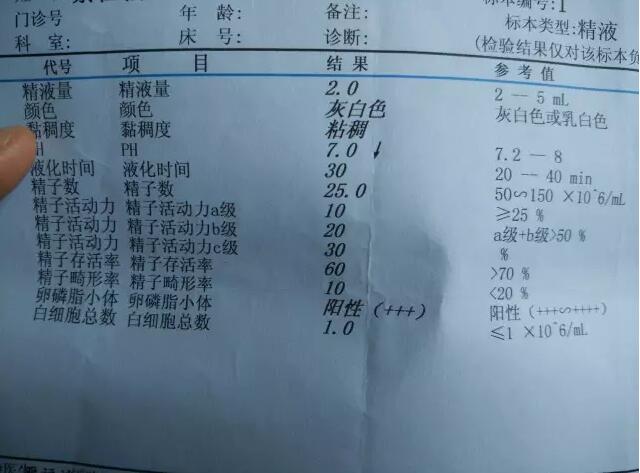 门诊号 年 龄: 备注: 标本编号:1
科 室: 床 号: 诊断: 标本类型:精液
(检验结果仅对该标本负
代号 项 目 结 果 参 考 值
精液量 精液量 2.0 2 -- 5 mL
颜色 颜色 灰白色 灰白色或乳白色
黏稠度 黏稠度 粘稠
PH 7.0 ↓ 7.2 -- 8
液化时间 液化时间 30 20 -- 40 min
精子数 精子数 25.0 50∽150 ×10^6/mL
精子活动力 精子活动力a级 10 ≥25 %
精子活动力 精子活动力b级 20 a级+b级>50 %
精子活动力 精子活动力c级 30 %
精子存活率 精子存活率 60 >70 %
精子畸形率 精子畸形率 10 <20 %
卵磷脂小体 卵磷脂小体 阳性（+++） 阳性（+++∽++++）
白细胞总数 白细胞总数 1.0 ≤1 ×10^6/mL